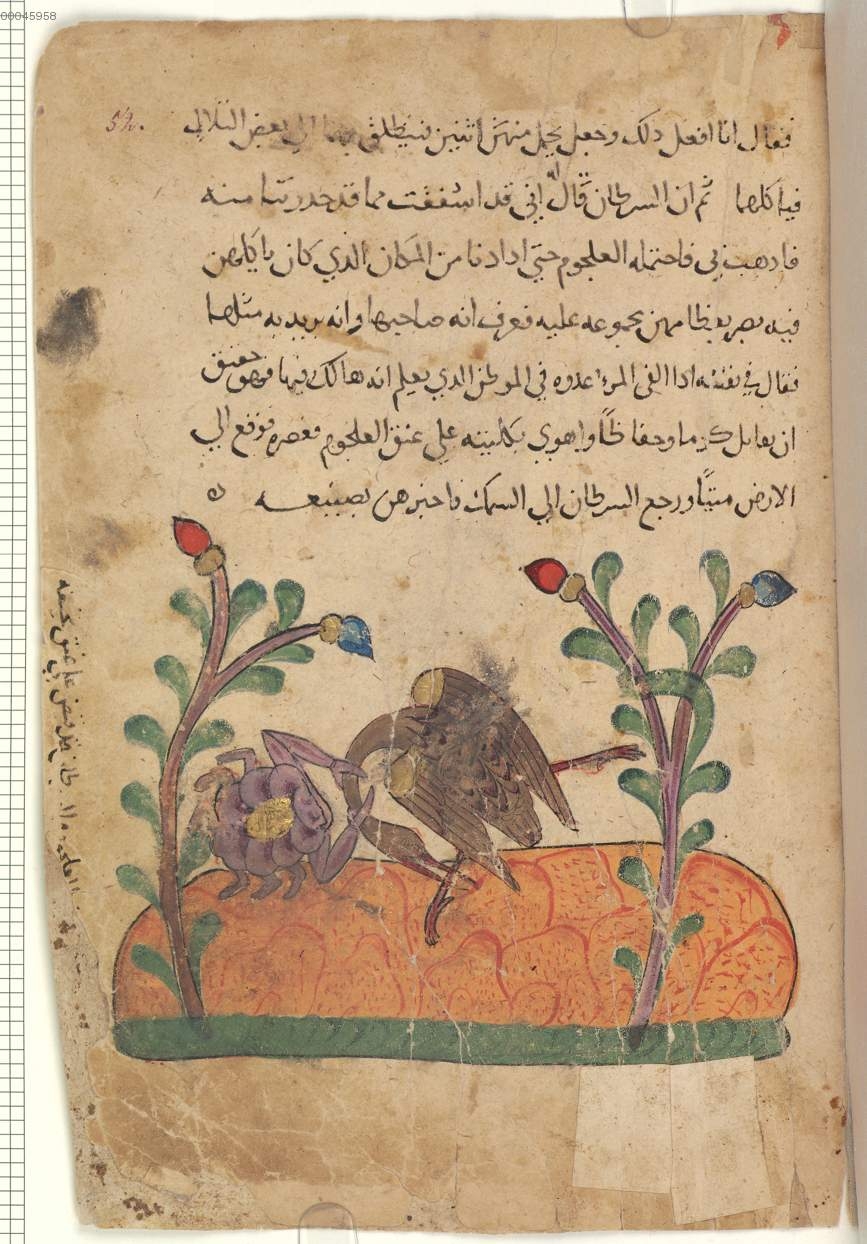 00045958
54.
فقال انا افعل ذلك وجعل يحمل منهن اثنين فينطلق بهما الي بعض التلال
فياكلهما ثم ان السرطان قال له اني قد اشفقت مما قد حذرتنا منه
فاذهب بي فاحتمله العلجوم حتي اذا دنا من المكان الذي كان ياكلهن
فيه بصر بعظامهن مجموعه عليه فعرف انه صاحبها وانه يريد به مثلها
فقال في نفسه اذا القى المرء عدوه في الموطن الذي يعلم انه هالك فيها فهو حقيق
ان يقاتل كرما وحفاظاً واهوي بكلبتيه علي عنق العلجوم فعصره فوقع الي
الارض ميتًا ورجع السرطان الي السمك فاخبرهن بصنيعه